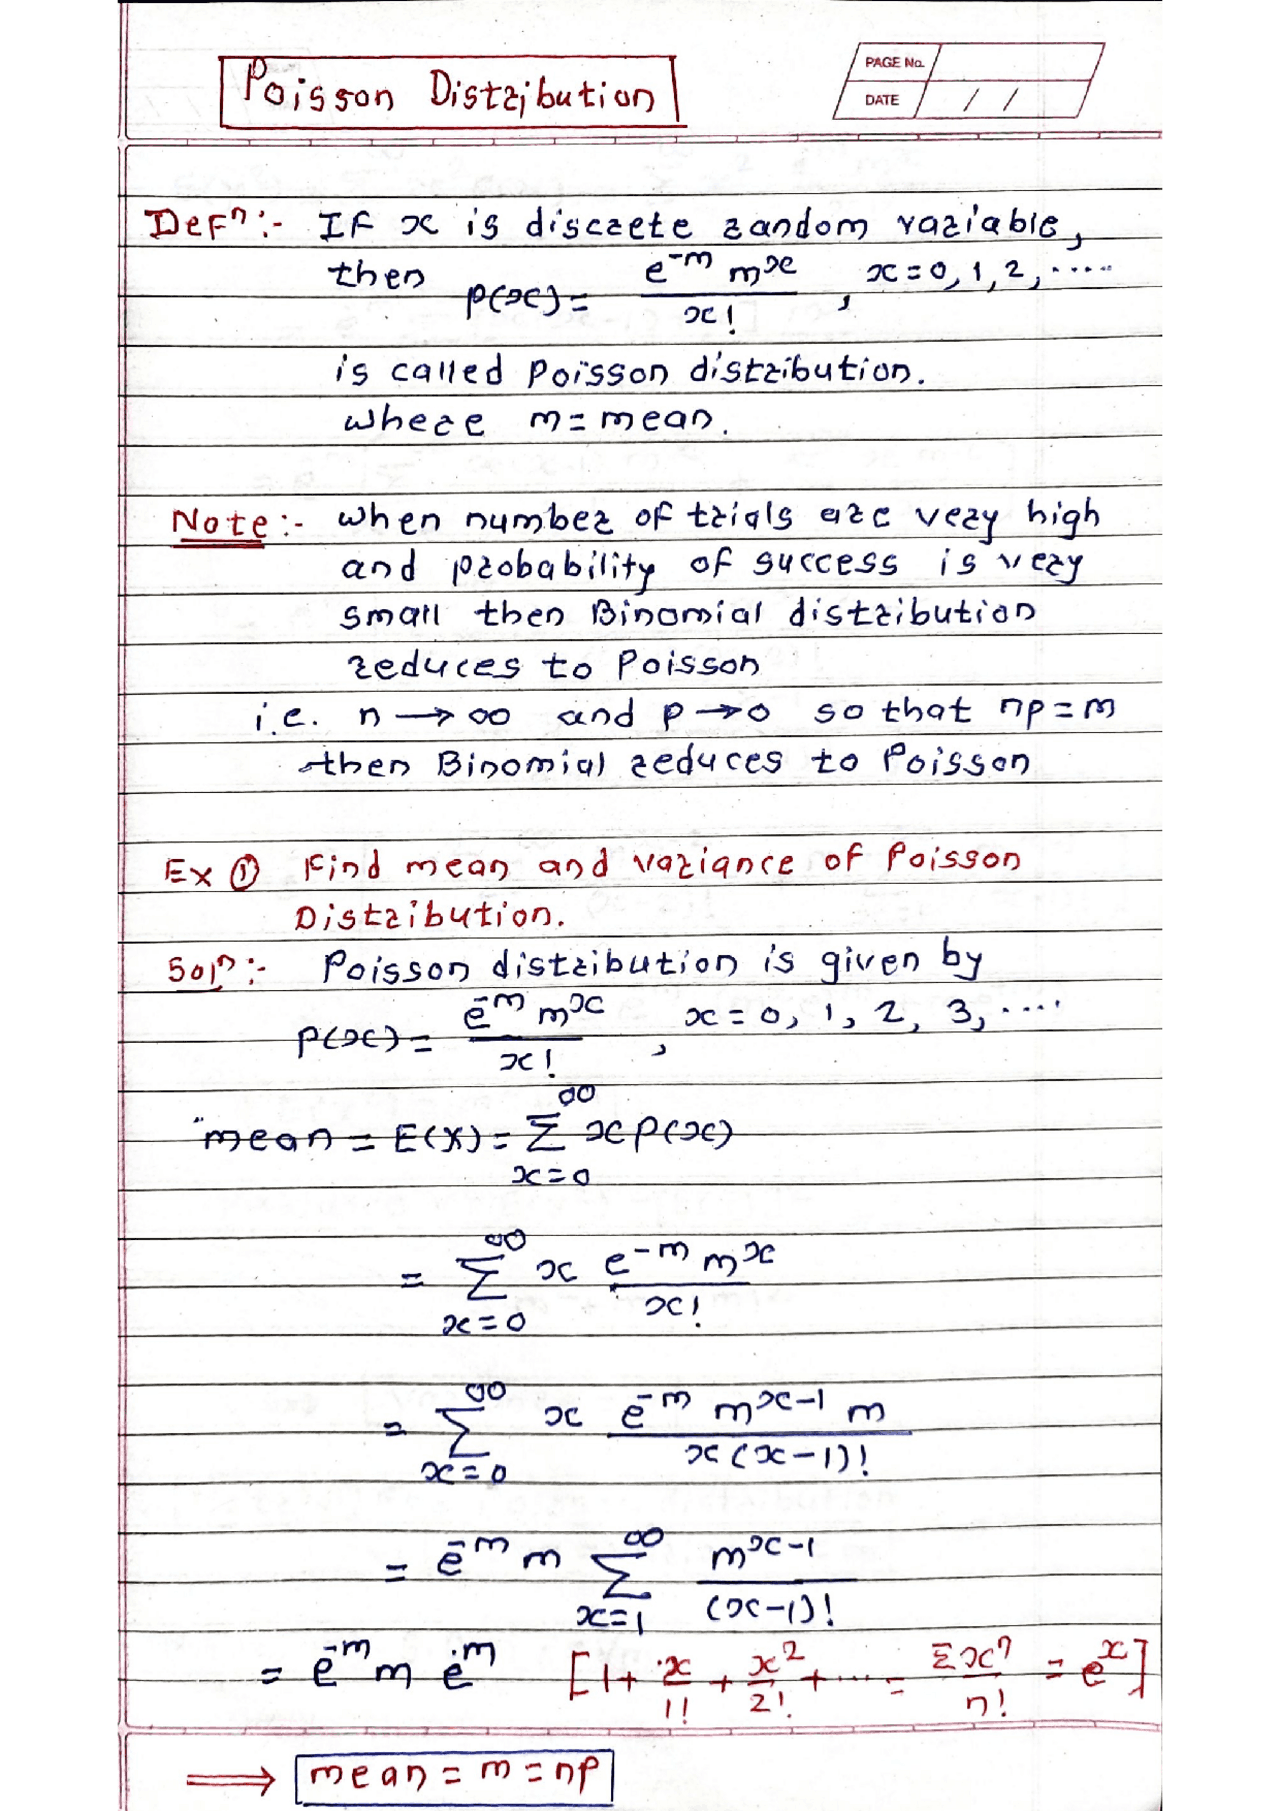 Poisson Distribution
PAGE No.
DATE / /
Defⁿ:- If x is discrete random variable,
then p(x) = e^-m m^x / x! , x = 0, 1, 2, .....
is called Poisson distribution.
where m = mean.
Note:- when number of trials are very high
and probability of success is very
small then Binomial distribution
reduces to Poisson
i.e. n → ∞ and p → 0 so that np = m
then Binomial reduces to Poisson
Ex ① Find mean and variance of Poisson
Distribution.
Solⁿ:- Poisson distribution is given by
p(x) = e^-m m^x / x! , x = 0, 1, 2, 3, ....
mean = E(X) = ∞ Σ x=0 x p(x)
= ∞ Σ x=0 x e^-m m^x / x!
= ∞ Σ x=0 x e^-m m^x-1 m / x(x-1)!
= e^-m m ∞ Σ x=1 m^x-1 / (x-1)!
= e^-m m e^m [1 + x/1! + x²/2! + .... = Σxⁿ/n! = e^x]
⟹ mean = m = np